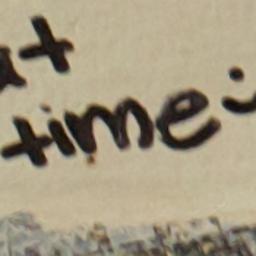 at
time